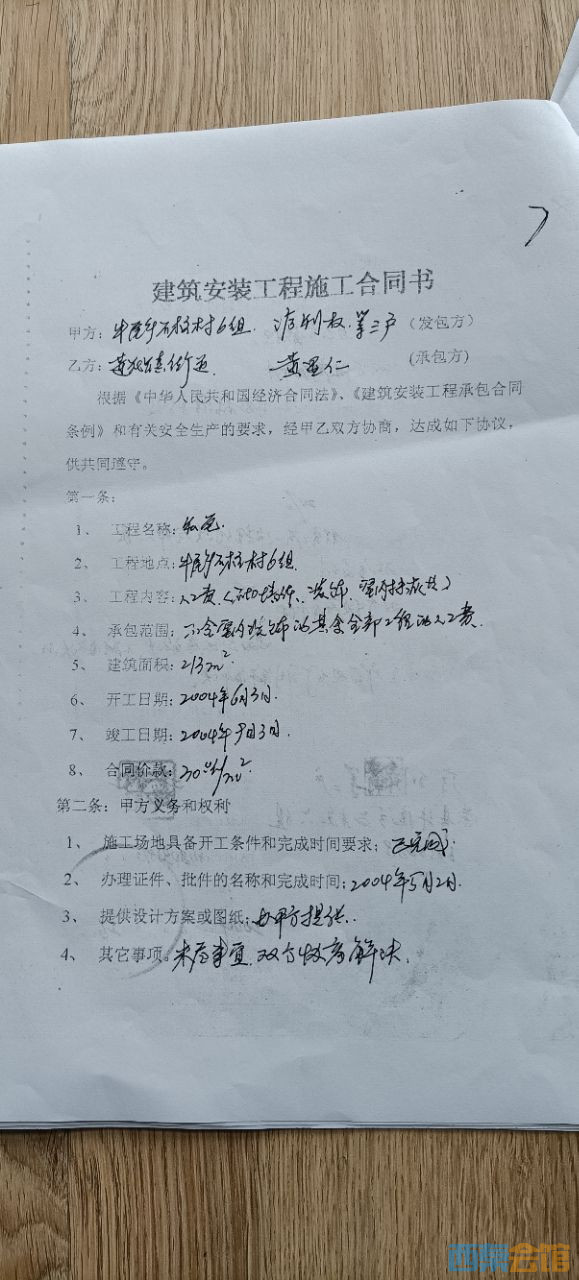 建筑安装工程施工合同书
甲方:牛 乡石柱村6组. 第三户(发包方)
乙方: 黄 仁 (承包方)
根据《中华人民共和国经济合同法》、《建筑安装工程承包合同
条例》和有关安全生产的要求,经甲乙双方协商,达成如下协议,
供共同遵守。
第一条:
1、 工程名称:
2、 工程地点:牛 乡石柱村6组.
3、 工程内容:人工费(
4、 承包范围:不含室内装饰的其余全部工程的人工费.
5、 建筑面积:213m².
6、 开工日期:2004年6月3日.
7、 竣工日期:2004年 月3日.
8、 合同价款: /m².
第二条:甲方义务和权利
1、 施工场地具备开工条件和完成时间要求:已完成.
2、 办理证件、批件的名称和完成时间:2004年5月2日.
3、 提供设计方案或图纸:由甲方提供..
4、 其它事项。未尽事宜,双方协商解决.
西京会馆